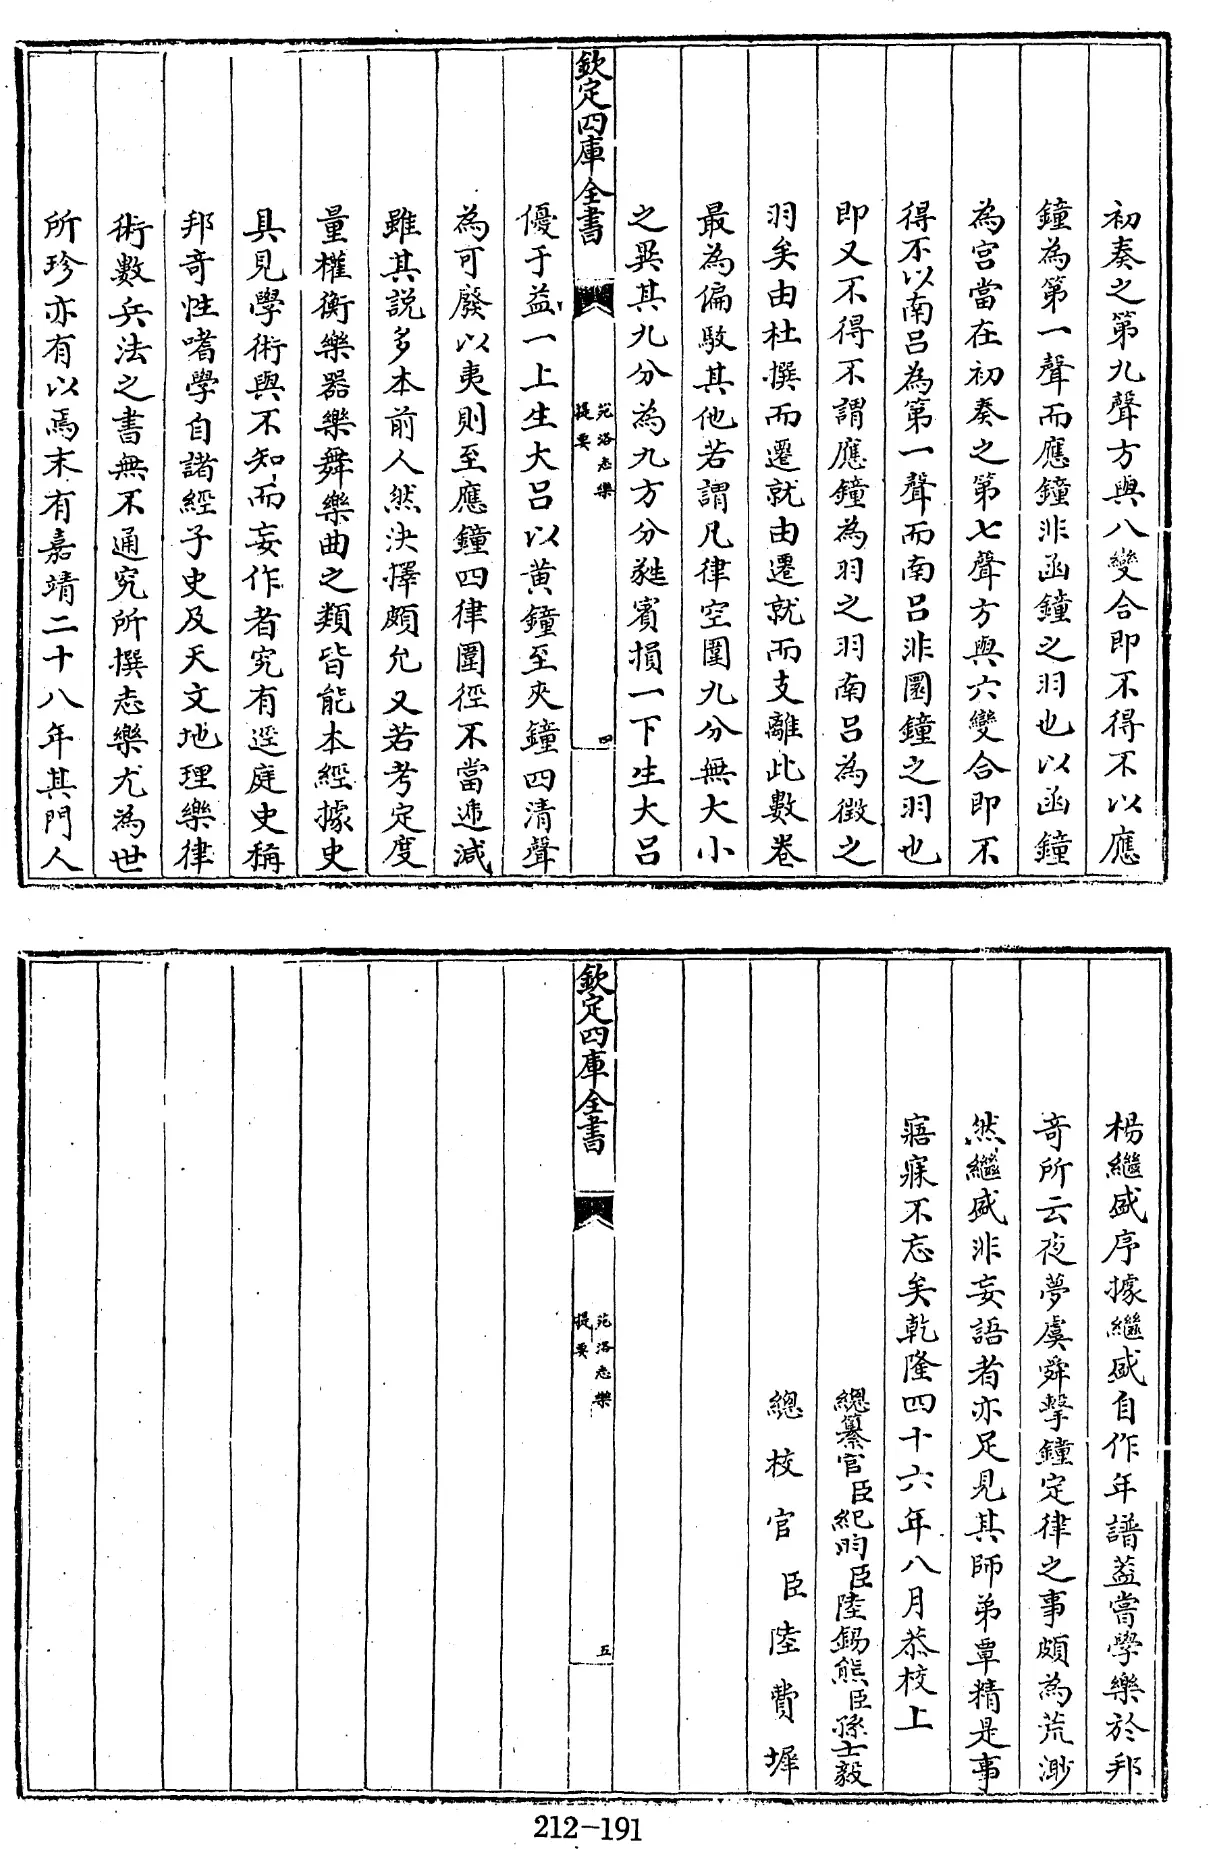 初奏之第九聲方與八變合即不得不以應
鐘為第一聲而應鐘非函鐘之羽也以函鐘
為宮當在初奏之第七聲方與六變合即不
得不以南呂為第一聲而南呂非圜鐘之羽也
即又不得不謂應鐘為羽之羽南呂為徵之
羽矣由杜撰而遷就由遷就而支離此數卷
最為偏駁其他若謂凡律空圍九分無大小
之異其九分為九方分蕤賓損一下生大呂
欽定四庫全書
苑洛志樂
提要
四
優于益一上生大呂以黃鐘至夾鐘四清聲
為可廢以夷則至應鐘四律圍徑不當遞減
雖其說多本前人然決擇頗允又若考定度
量權衡樂器樂舞樂曲之類皆能本經據史
具見學術與不知而妄作者究有逕庭史稱
邦奇性嗜學自諸經子史及天文地理樂律
術數兵法之書無不通究所撰志樂尤為世
所珍亦有以焉末有嘉靖二十八年其門人
楊繼盛序據繼盛自作年譜蓋嘗學樂於邦
奇所云夜夢虞舜擊鐘定律之事頗為荒渺
然繼盛非妄語者亦足見其師弟覃精是事
寤寐不忘矣乾隆四十六年八月恭校上
總纂官臣紀昀臣陸錫熊臣孫士毅
總校官臣陸費墀
欽定四庫全書
苑洛志樂
提要
五
212-191